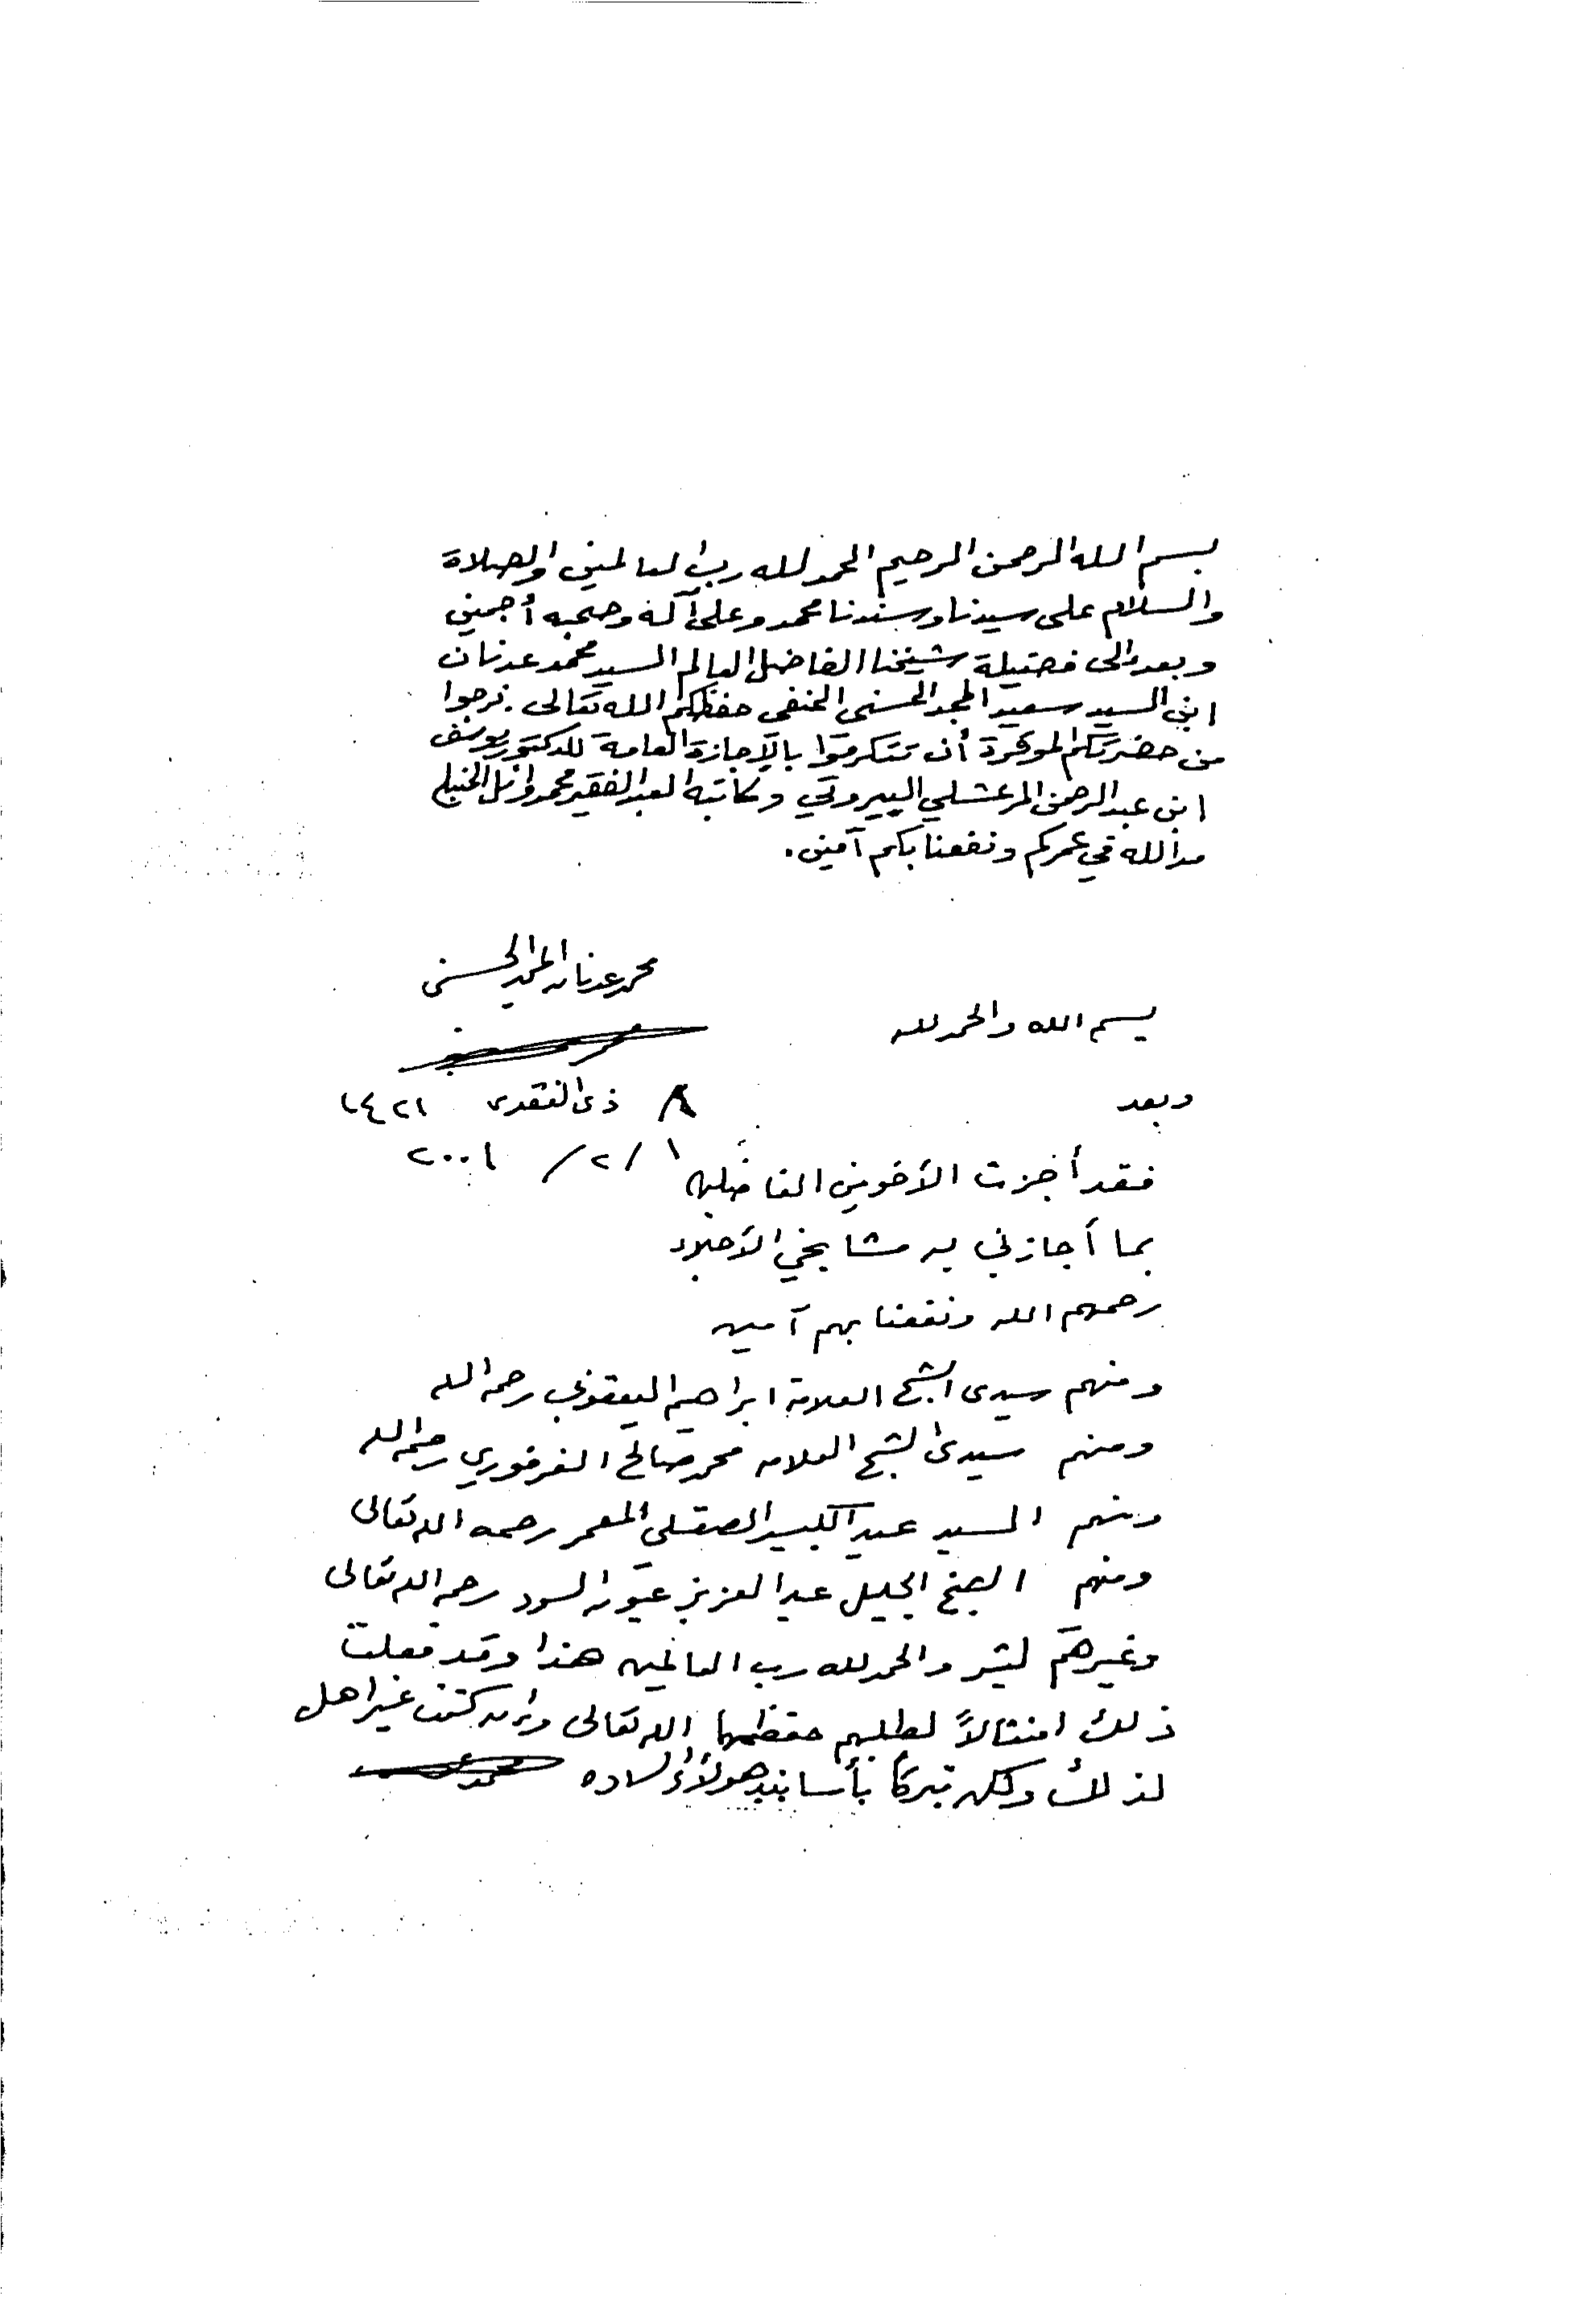 بسم الله الرحمن الرحيم الحمد لله رب العالمين والصلاة
والسلام على سيدنا وسندنا محمد وعلى آله وصحبه أجمعين
وبعد إلى فضيلة شيخنا الفاضل العالم السيد محمد عدنان
ابن السيد سعيد المجد الحسني الحنفي حفظكم الله تعالى. نرجوا
من حضرتكم الموقرة أن تتكرموا بالإجازة العامة للدكتور يوسف
ابن عبد الرحمن المرعشلي البيروتي وكاتبه العبد الفقير محمد وائل الحنبلي
مد الله في عمركم ونفعنا بكم آمين.
محمد عدنان المجد الحسني
بسم الله والحمد لله
وبعد
٨ ذي القعدة ١٤٢١
١ / ٢ / ٢٠٠١
فقد أجزت الأخوين الفاضلين
بما أجازني به مشايخي الأجلاء
رحمهم الله ونفعنا بهم آمين
ومنهم سيدي الشيخ العلامة ابراهيم اليعقوبي رحمه الله
ومنهم سيدي الشيخ العلامه محمد صالح الفرفوري رحمه الله
ومنهم السيد عبد الكبير الصقلي المعمر رحمه الله تعالى
ومنهم الشيخ الجليل عبد العزيز عيون السود رحمه الله تعالى
وغيرهم كثير والحمد لله رب العالمين هذا وقد فعلت
ذلك امتثالاً لطلبهم حفظهما الله تعالى وإن كنت غير اهل
لذلك ولكن تبركاً بأسانيد هؤلاء الساده